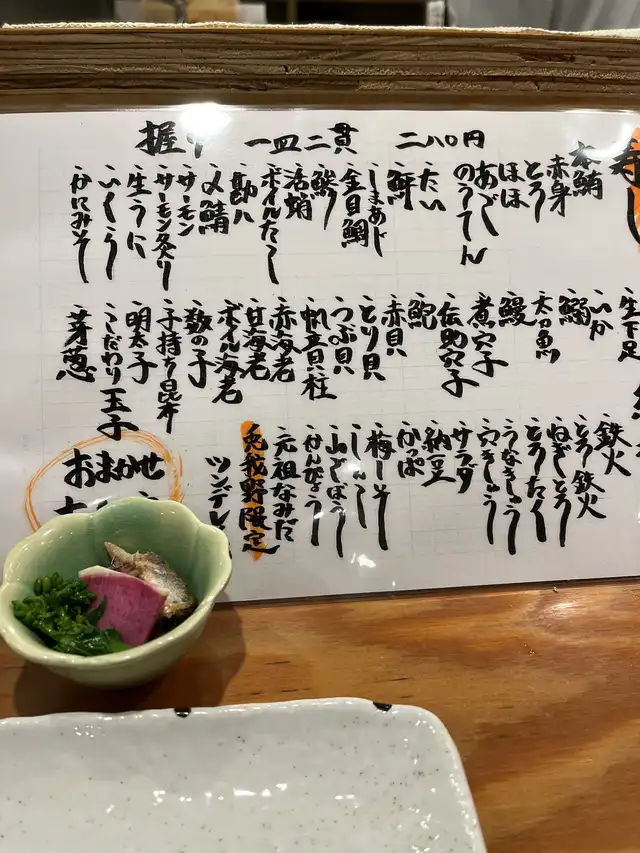 握り 一皿二貫 二八〇円
寿し
本鮪
赤身
とろ
ほほ
あごし
のうてん
たい
鮃
しまあじ
金目鯛
鯵
活蛸
ボイルたこ
勘八
〆鯖
サーモン
サーモン炙り
生うに
いくら
かにみそ
生下足
いか
鰯
太刀魚
鰻
煮穴子
伝助穴子
鮑
赤貝
とり貝
つぶ貝
帆立貝柱
赤海老
甘海老
ボイル海老
数の子
子持ち昆布
明太子
こだわり玉子
芽葱
鉄火
とろ鉄火
ねぎとろ
とろたく
うなきゅう
穴きゅう
サラダ
納豆
かっぱ
梅しそ
しんこ
山ごぼう
かんぴょう
元祖なみだ
兎我野限定
ツンデレ
おまかせ